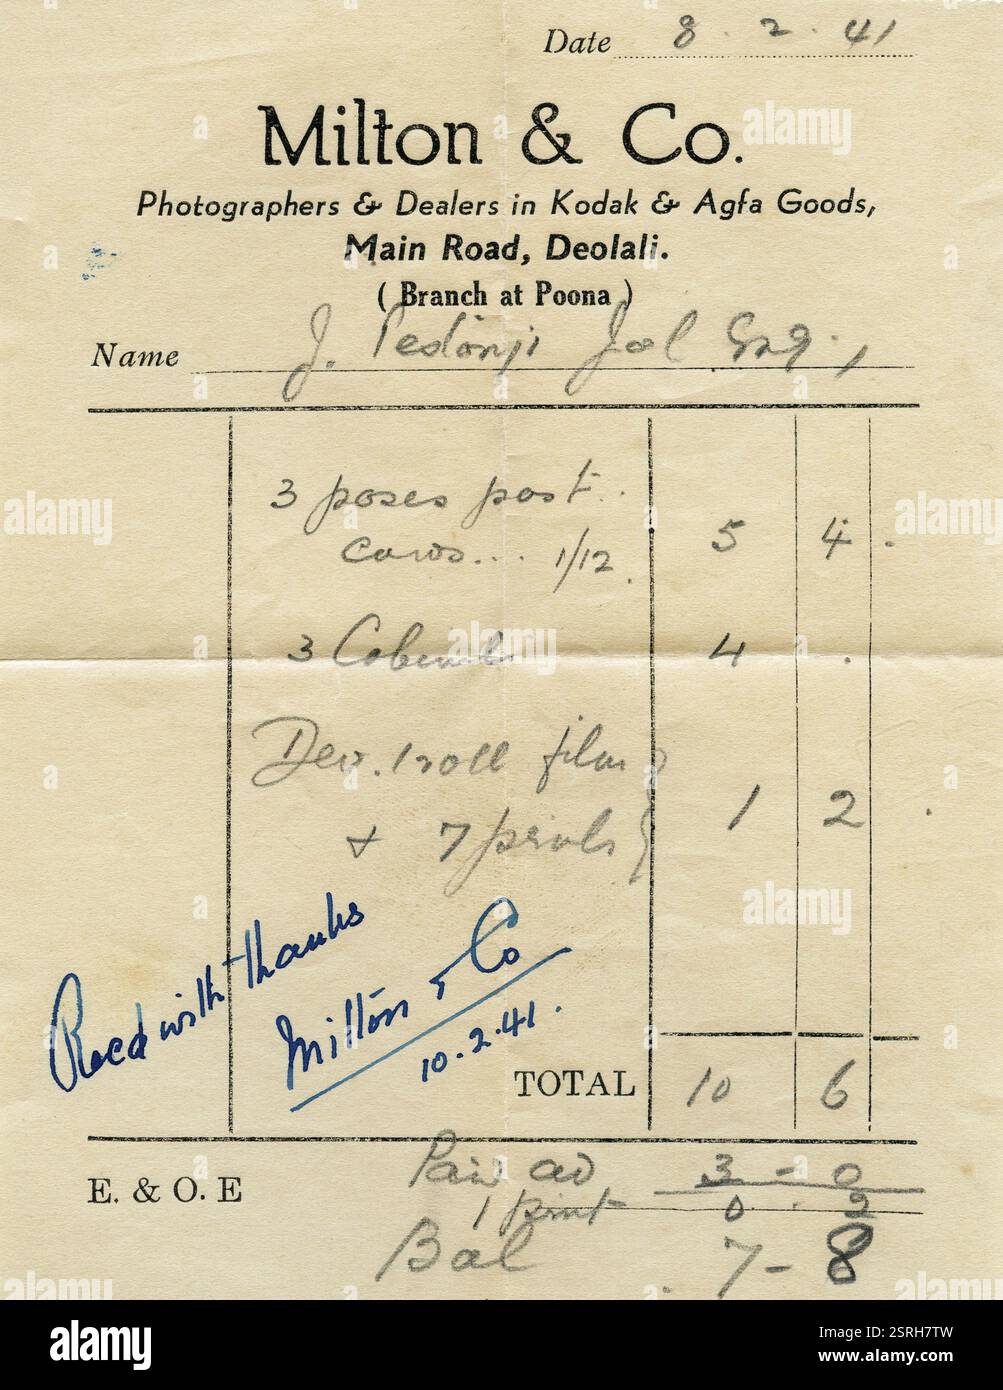 Date 8.2.41
Milton & Co.
Photographers & Dealers in Kodak & Agfa Goods,
Main Road, Deolali.
( Branch at Poona )
Name J. Pestonji Esq.,
3 poses post..
cards... 1/12. 5 4.
3 Cabinet 4 .
Dev. 1 roll film
+ 7 prints } 1 2.
Recd with thanks
Milton & Co
10.2.41.
TOTAL 10 6
E. & O. E Paid ad 3 - 0
1 print 0 . 2
Bal 7 - 8
alamy
Image ID: 2SRH7TW
www.alamy.com